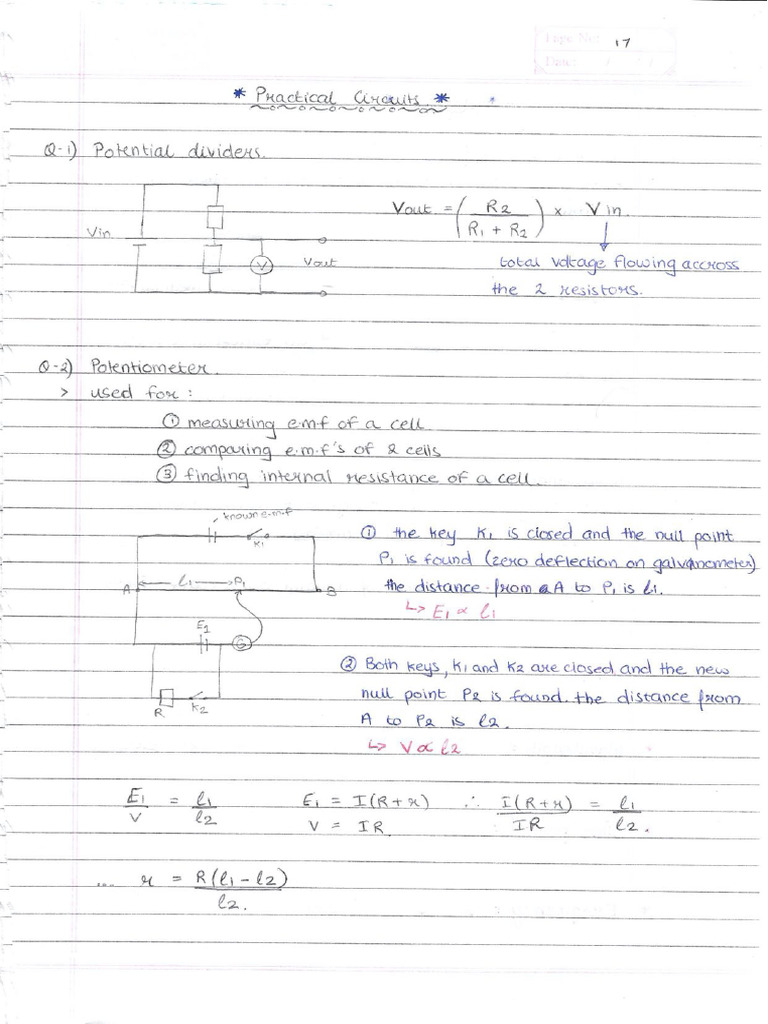 Page No: 17
Date: / /
* Practical Circuits *
Q-1) Potential dividers.
Vin
V
Vout
Vout = (R2 / R1 + R2) x Vin
total voltage flowing accross
the 2 resistors.
Q-2) Potentiometer.
> used for:
① measuring e.m.f of a cell
② comparing e.m.f's of 2 cells
③ finding internal resistance of a cell.
known e.m.f
K1
A
l1
P1
B
E1
G
R
K2
① the key K1 is closed and the null point
P1 is found (zero deflection on galvanometer)
the distance from A to P1 is l1.
↳ E1 ∝ l1
② Both keys, K1 and K2 are closed and the new
null point P2 is found. the distance from
A to P2 is l2.
↳ V ∝ l2
E1/V = l1/l2
E1 = I(R+r)
V = IR
∴ I(R+r)/IR = l1/l2.
... r = R(l1-l2)/l2.